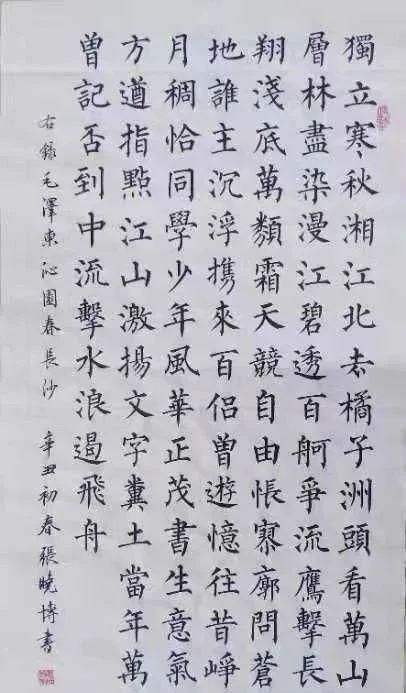 獨立寒秋湘江北去橘子洲頭看萬山
層林盡染漫江碧透百舸爭流鷹擊長
翔淺底萬類霜天競自由悵寥廓問蒼
地誰主沉浮携來百侶曾遊憶往昔崢
月稠恰同學少年風華正茂書生意氣
方遒指點江山激揚文字糞土當年萬
曾記否到中流擊水浪遏飛舟
右錄毛澤東沁園春長沙 辛丑初春張曉博書